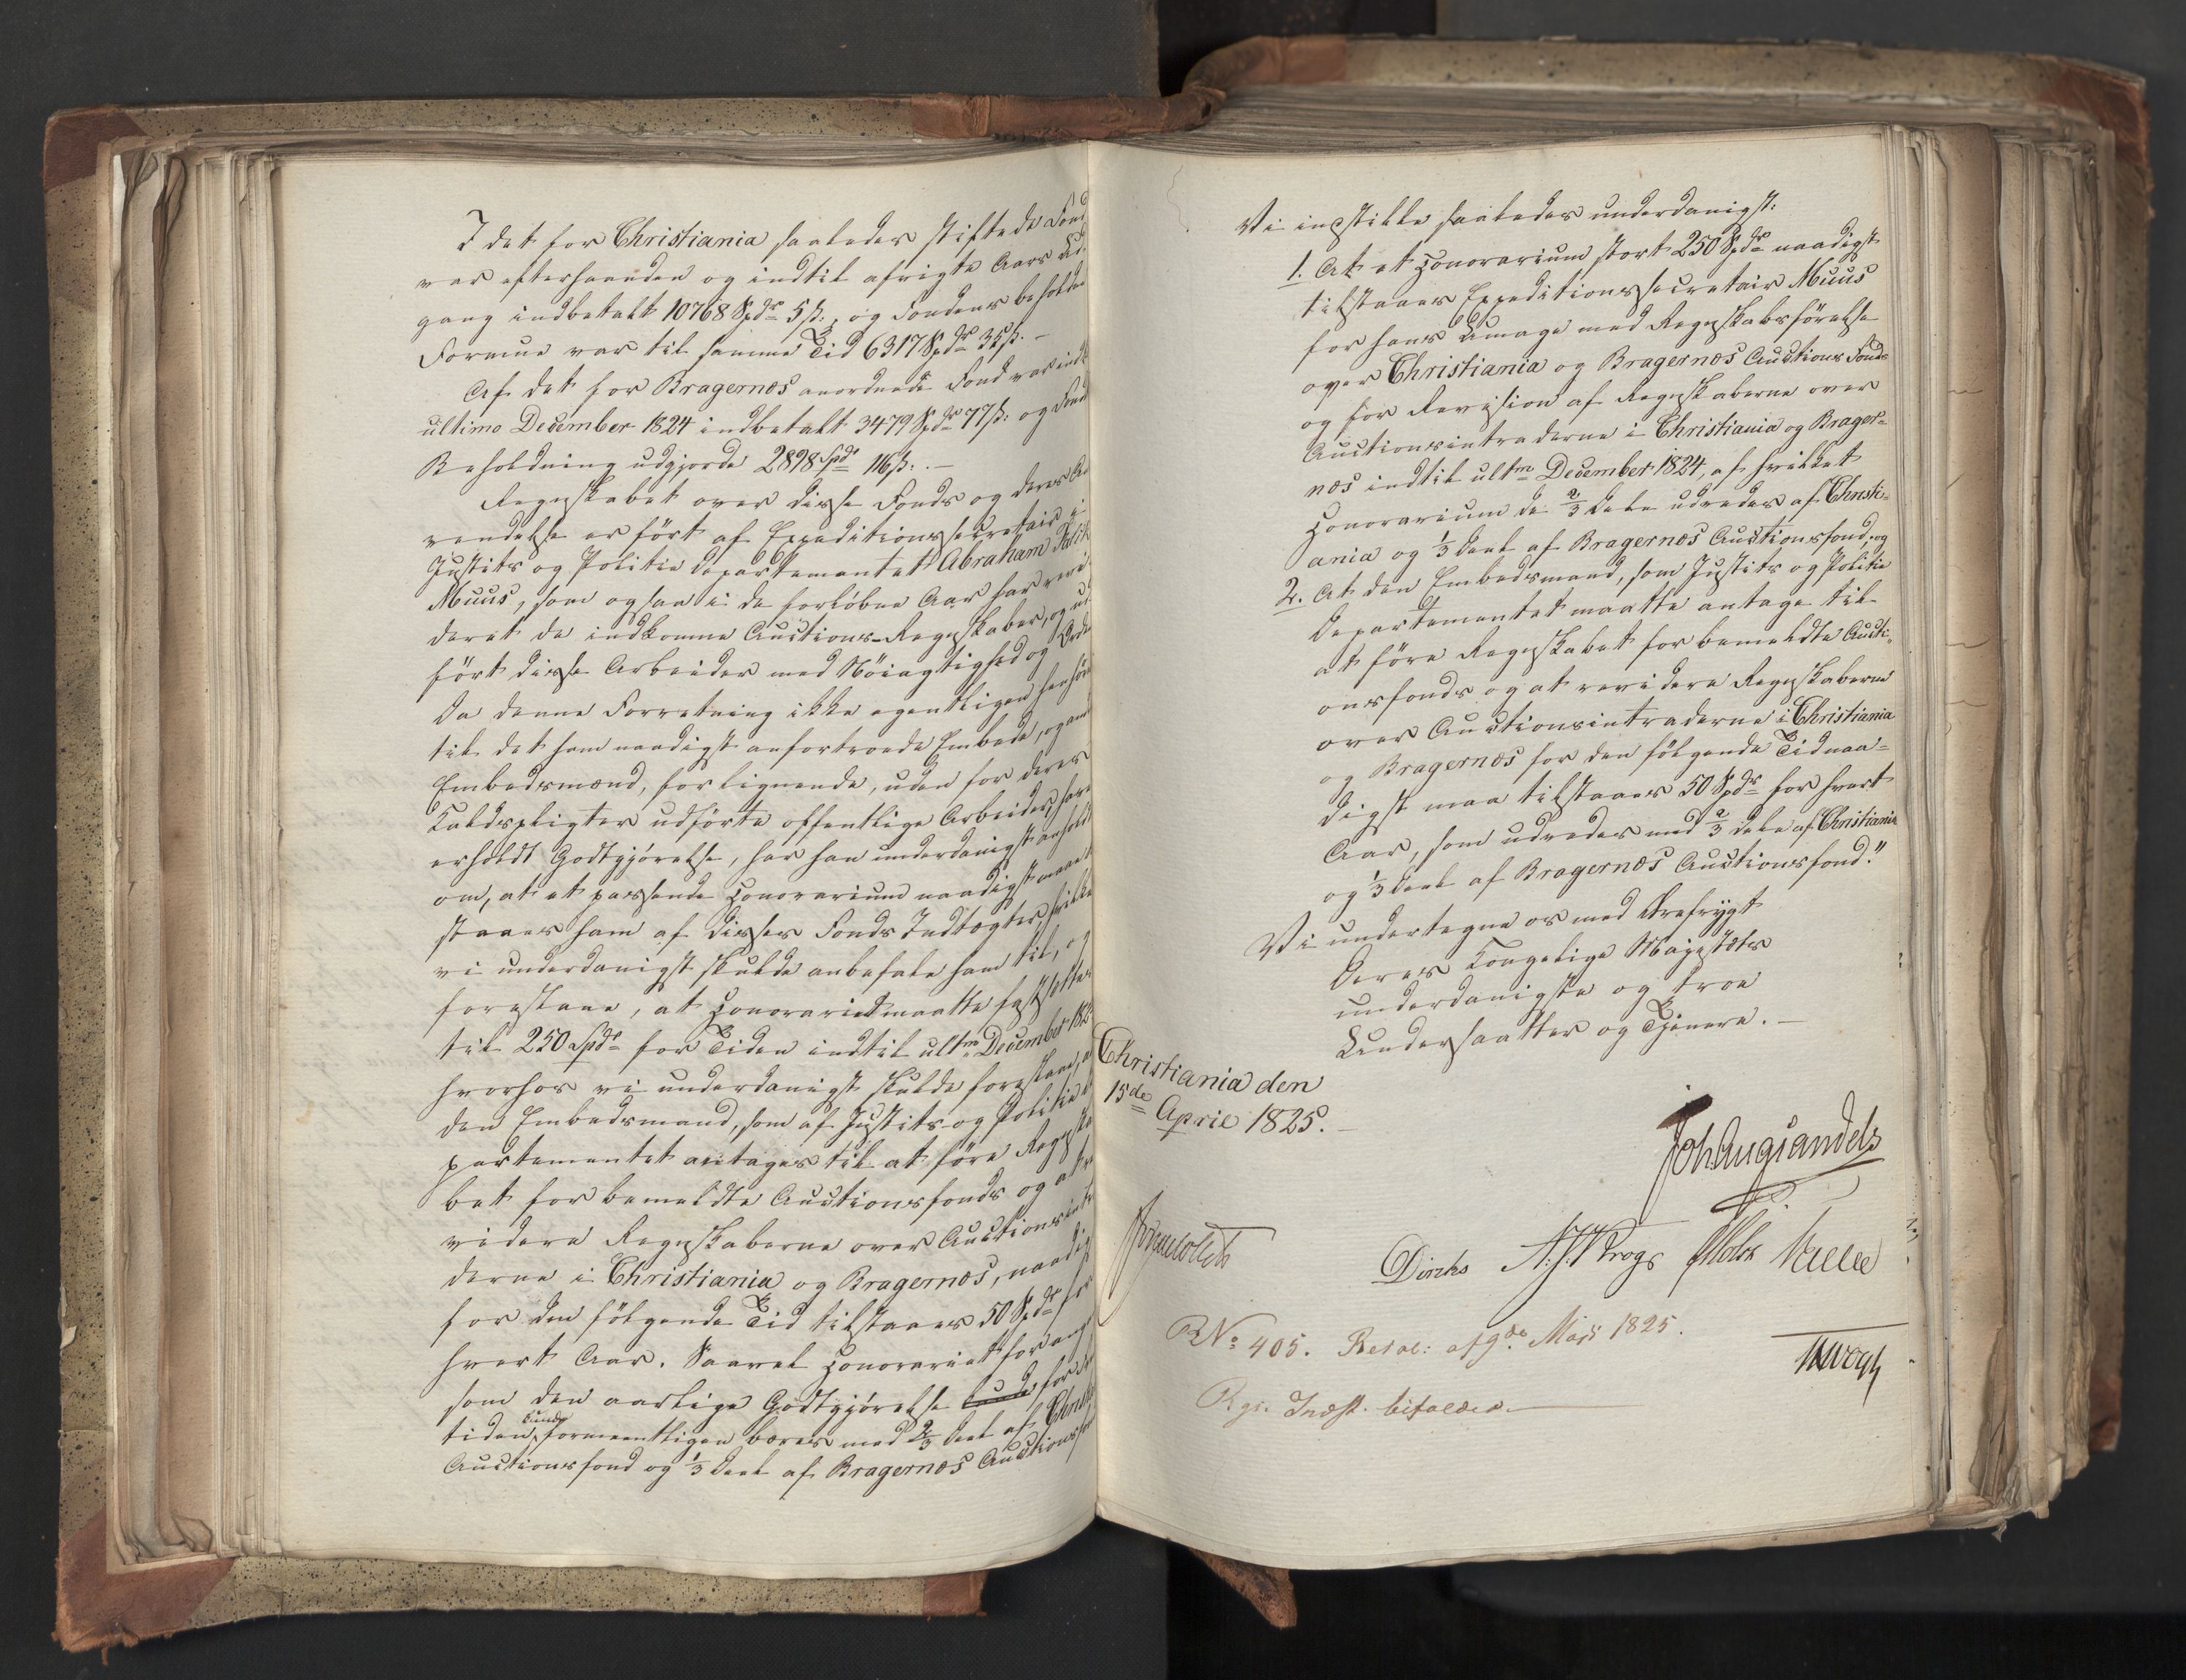 I det for Christiania saaledes stiftede Fond
var efterhaanden og indtil afvigte Aars Ud-
gang indbetalt 10768 Spdr 5 ß., og Fondens beholdne
Formue var til samme Tid 6317 Spdr 35 ß. –
Af det for Bragernæs anordnede Fond var indt
ultimo December 1824 indbetalt 3479 Spdr 77 ß: og Fond
Beholdning udgjorde 2898 Spdr 116 ß. –
Regnskabet over disse Fonds og deres An
vendelse er ført af Expeditionssecretair i
Justits og Politie Departementet Abraham Falk
Muus, som ogsaa i de forløbne Aar har revi
deret de indkomne Auctions-Regnskaber, og ud
ført disse Arbeider med Nøiagtighed og Orde
Da denne Forretning ikke egentligen henhør
til det ham naadigst anfortroede Embede, og and
Embedsmænd, for lignende, uden for deres
Kaldspligter udførte offentlige Arbeider, have
erholdt Godtgjørelse, har han underdanigst anholdt
om, at et passende Honorarium naadigst maae
staaes ham af disses Fonds Indtægter, hvilke
vi underdanigst skulde anbefale ham til, og
foreslaae, at Honorariet maatte fastsættes
til 250 Spdr for Tiden indtil ultm December 182
hvorhos vi underdanigst skulde foreslaae, a
den Embedsmand, som af Justits og Politie D
partementet antages til at føre Regnska
bet for bemeldte Auctionsfonds og at re
videre Regnskaberne over Auctionsintra
derne i Christiania og Bragernæs, naadig
for den følgende Tid tilstaaes 50 Spdr for
hvert Aar. Saavel Honorariet for
som den aarlige Godtgjørelse kunde for
tiden, kunde formeentligen bæres med 2/3 Deel af Christi
Auctionsfond og 1/3 Deel af Bragernæs Auctionsfon
Vi indstille saaledes underdanigst:
1. At et Honorarium stort 250 Spdr naadigst
tilstaaes Expeditionssecretair Muus
for hans Umage med Regnskabsførelse
over Christiania og Bragernæs Auctions Fonds
og for Revision af Regnskaberne over
Auctionsintraderne i Christiania og Brager-
næs indtil ultm December 1824, af hvilket
Honorarium de 2/3 Dele udredes af Christi-
ania og 1/3 Deel af Bragernæs Auctionsfond; og
2. At den Embedsmand, som Justits og Politie
Departementet maatte antage til
at føre Regnskabet for bemeldte Aucti-
onsfonds og at revidere Regnskaberne
over Auctionsintraderne i Christiania
og Bragernæs for den følgende Tid naa-
digst maa tilstaaes 50 Spdr for hvert
Aar, som udredes med 2/3 Dele af Christiania
og 1/3 Deel af Bragernæs Auctionsfond."
Vi undertegne os med Ærefrygt
Deres Kongelige Majestæts
underdanigste og troe
Undersaatter og Tjenere. –
Christiania den
15de April 1825. –
Joh Aug Sandels
Jonas Collett
Diriks A. J. Krogh P Motzfeldt
RNo 405. Resol: af 9de Maji 1825.
Rgs. Indst. bifaldes.